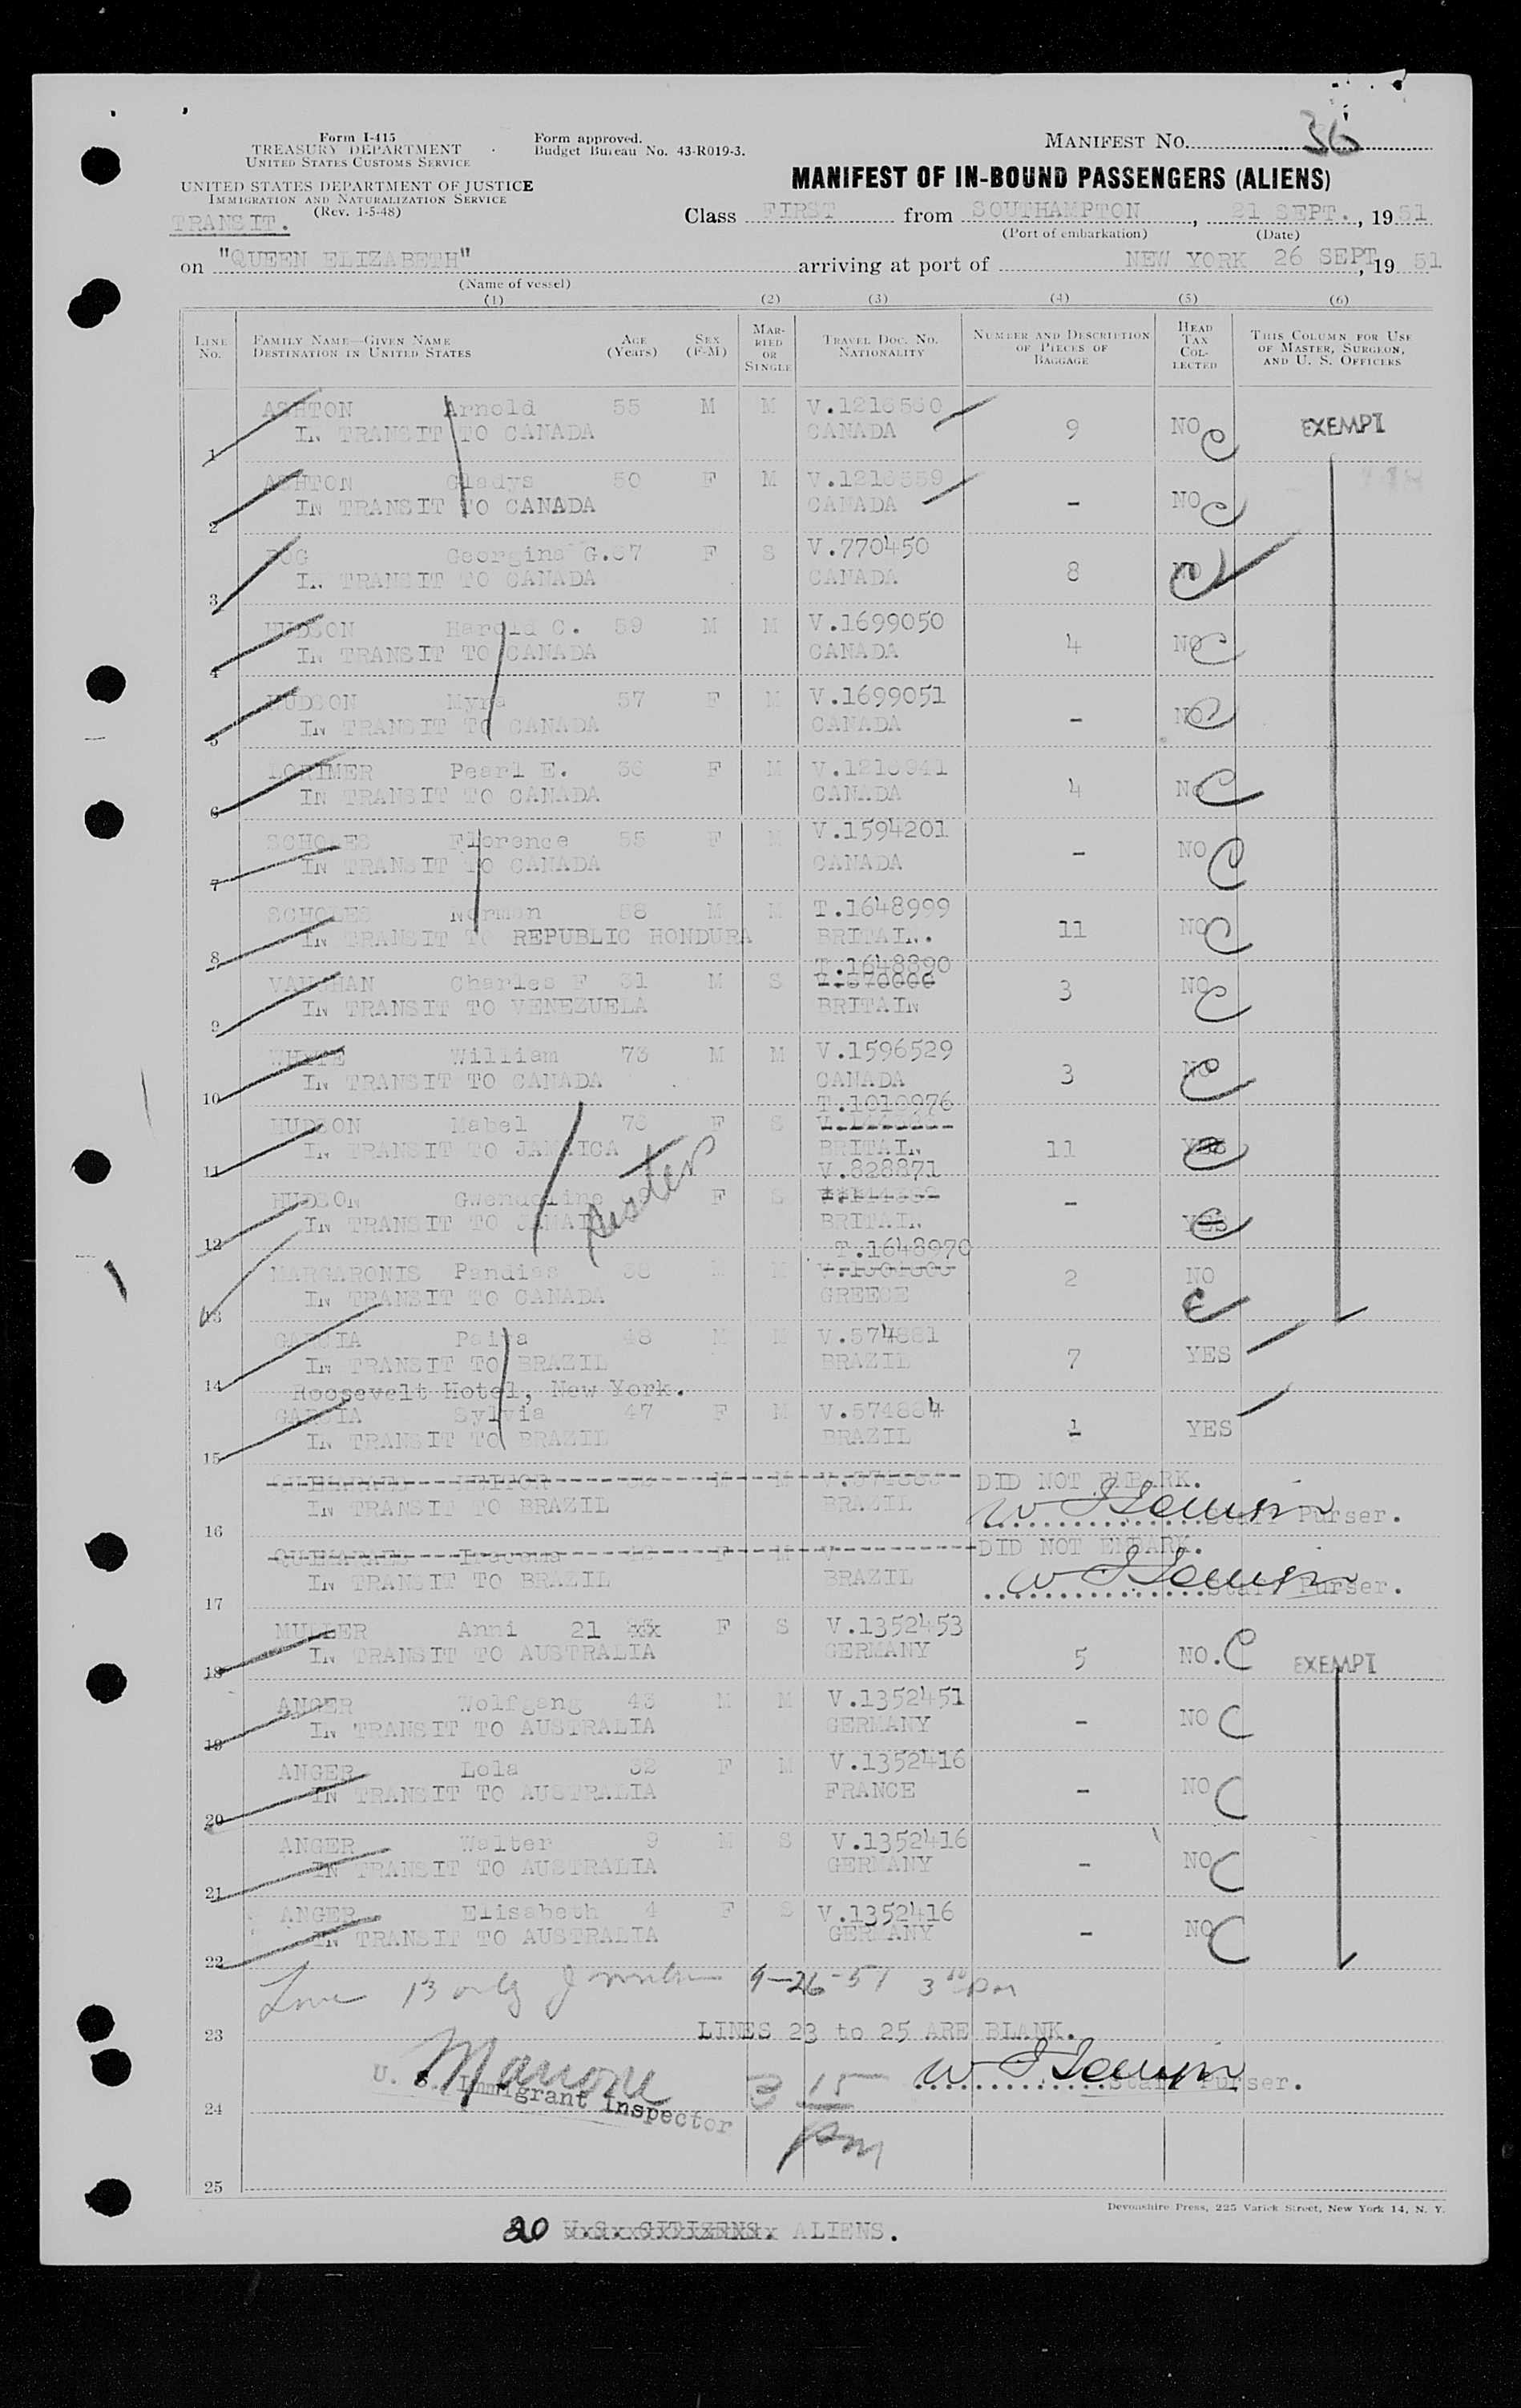 Form I-415
TREASURY DEPARTMENT
UNITED STATES CUSTOMS SERVICE
Form approved.
Budget Bureau No. 43-R019-3.
MANIFEST No. 36
UNITED STATES DEPARTMENT OF JUSTICE
IMMIGRATION AND NATURALIZATION SERVICE
(Rev. 1-5-48)
MANIFEST OF IN-BOUND PASSENGERS (ALIENS)
TRANSIT.
Class FIRST from SOUTHAMPTON, 21 SEPT., 1951
(Port of embarkation) (Date)
on "QUEEN ELIZABETH" arriving at port of NEW YORK 26 SEPT, 19 51
(Name of vessel)
(1) (2) (3) (4) (5) (6)
LINE No. FAMILY NAME—GIVEN NAME DESTINATION IN UNITED STATES AGE (Years) SEX (F-M) MARRIED OR SINGLE TRAVEL DOC. NO. NATIONALITY NUMBER AND DESCRIPTION OF PIECES OF BAGGAGE HEAD TAX COLLECTED THIS COLUMN FOR USE OF MASTER, SURGEON, AND U. S. OFFICERS
ASHTON Arnold 55 M M V.1216560
1 IN TRANSIT TO CANADA CANADA 9 NO C EXEMPT
ASHTON Gladys 50 F M V.1216559
2 IN TRANSIT TO CANADA CANADA - NO C
Georgina G. 37 F S V.770450
3 IN TRANSIT TO CANADA CANADA 8 NO C
HUDSON Harold C. 59 M M V.1699050
4 IN TRANSIT TO CANADA CANADA 4 NO C
HUDSON Myra 57 F M V.1699051
5 IN TRANSIT TO CANADA CANADA - NO C
LORIMER Pearl E. 36 F M V.1216941
6 IN TRANSIT TO CANADA CANADA 4 NO C
SCHOLES Florence 55 F M V.1594201
7 IN TRANSIT TO CANADA CANADA - NO C
SCHOLES Norman 58 M M T.1648999
8 IN TRANSIT TO REPUBLIC HONDURA BRITAIN. 11 NO C
T.1648890
VAUGHAN Charles F 31 M S
9 IN TRANSIT TO VENEZUELA BRITAIN 3 NO C
WHYTE William 73 M M V.1596529
10 IN TRANSIT TO CANADA CANADA 3 NO C
T.1010976
HUDSON Mabel 73 F S
11 IN TRANSIT TO JAMAICA BRITAIN 11 YES C
sister
V.828871
HUDSON Gwendoline F S
12 IN TRANSIT TO JAMAICA BRITAIN - YES C
T.1648970
MARGARONIS Pandias 38 M M
13 IN TRANSIT TO CANADA GREECE 2 NO C
GARSIA Paiva 48 M M V.574881
14 IN TRANSIT TO BRAZIL BRAZIL 7 YES
Roosevelt Hotel, New York.
GARSIA Sylvia 47 F M V.574884
15 IN TRANSIT TO BRAZIL BRAZIL 1 YES
HEITOR M M DID NOT EMBARK.
16 IN TRANSIT TO BRAZIL BRAZIL Staff Purser.
F M V DID NOT EMBARK.
17 IN TRANSIT TO BRAZIL BRAZIL Staff Purser.
MULLER Anni 21 F S V.1352453
18 IN TRANSIT TO AUSTRALIA GERMANY 5 NO. C EXEMPT
ANGER Wolfgang 43 M M V.1352451
19 IN TRANSIT TO AUSTRALIA GERMANY - NO C
ANGER Lola 32 F M V.1352416
20 IN TRANSIT TO AUSTRALIA FRANCE - NO C
ANGER Walter 9 M S V.1352416
21 IN TRANSIT TO AUSTRALIA GERMANY - NO C
ANGER Elisabeth 4 F S V.1352416
22 IN TRANSIT TO AUSTRALIA GERMANY - NO C
Line 13 only 9-26-51 3 00 pm
23 LINES 23 to 25 ARE BLANK.
U. S. Immigrant Inspector 3 15 pm Staff Purser.
24
25
Devonshire Press, 225 Varick Street, New York 14, N. Y.
20 U.S. CITIZENS. ALIENS.